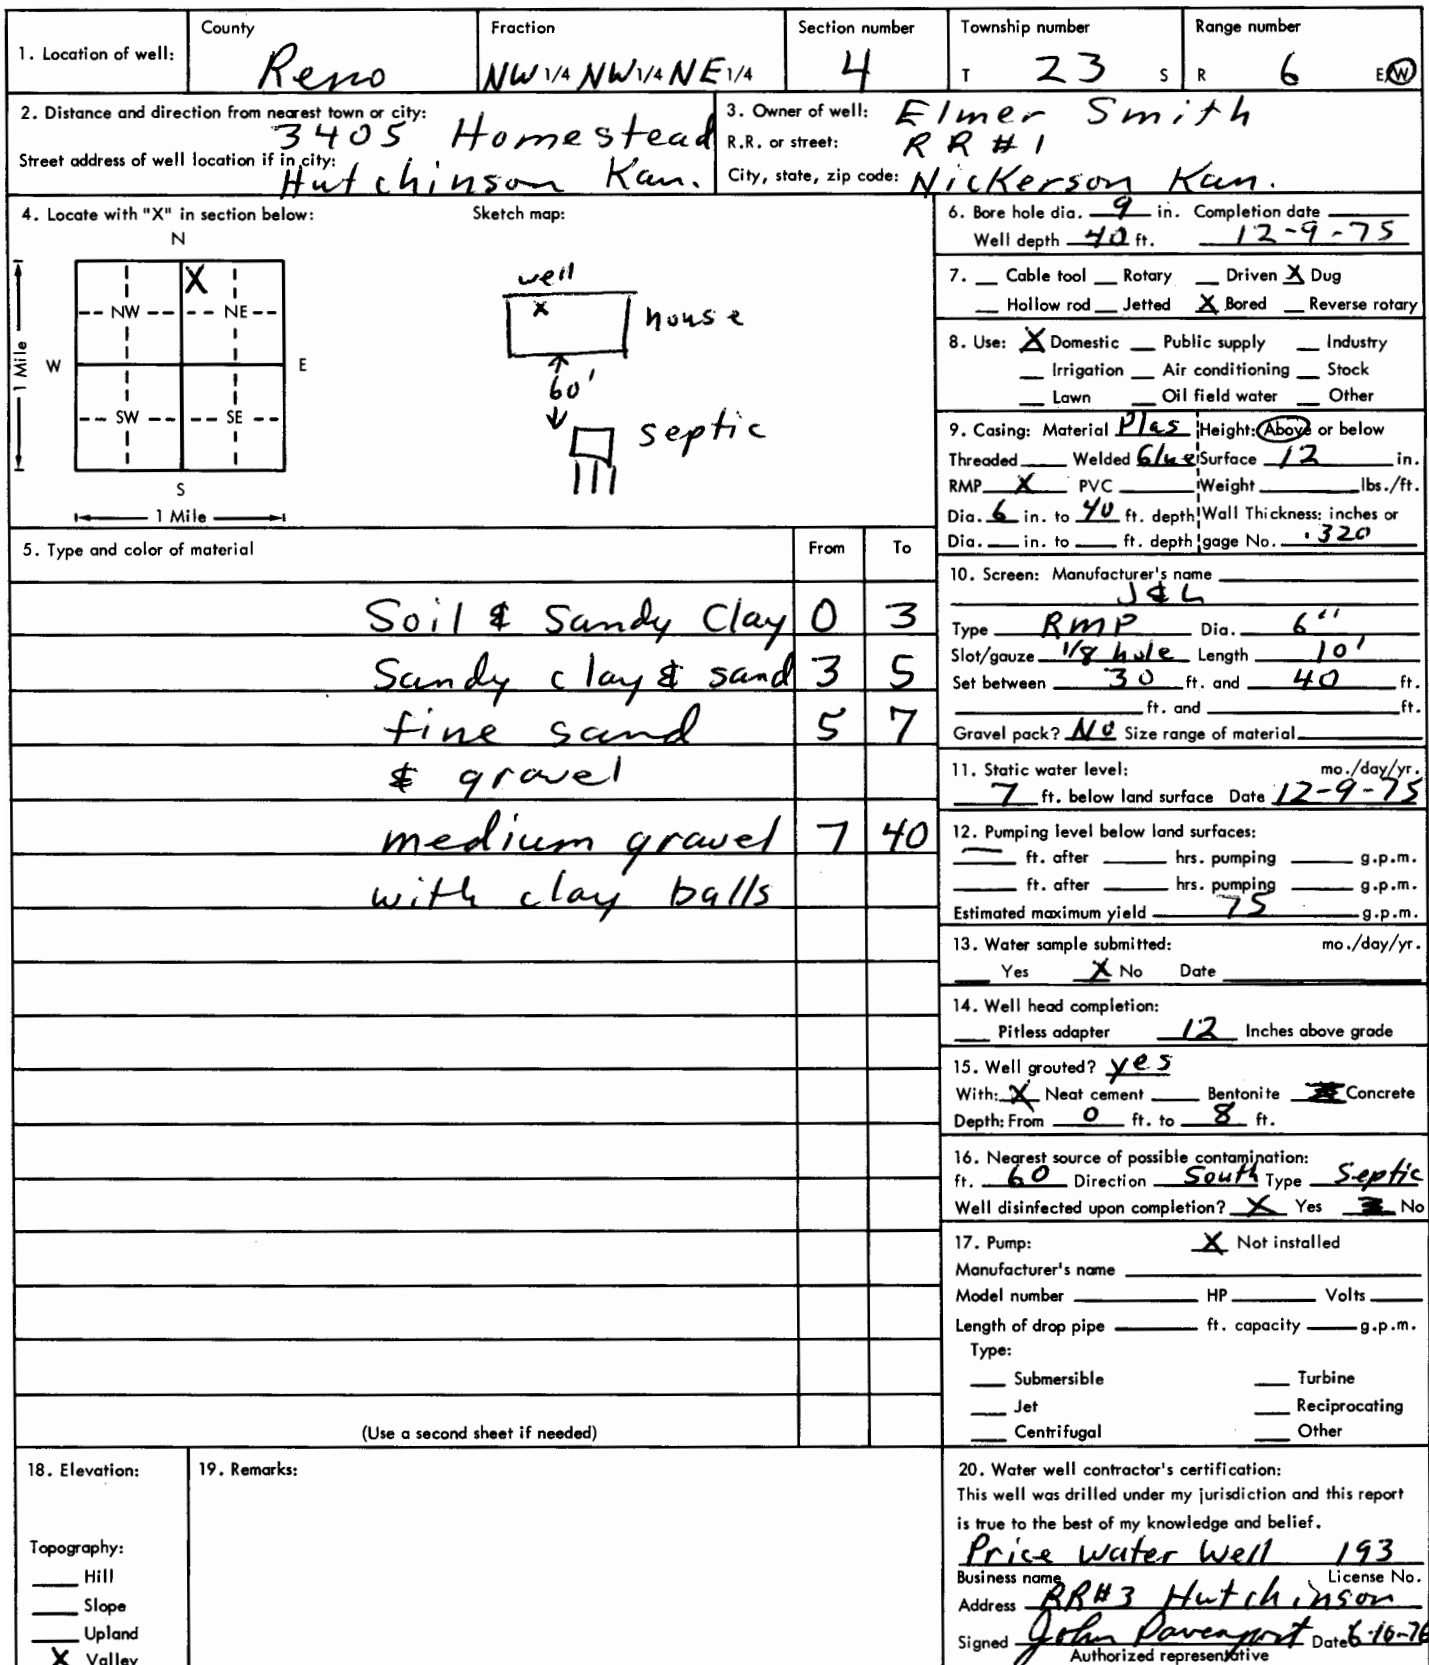 County Fraction Section number Township number Range number
1. Location of well: Reno NW 1/4 NW 1/4 NE 1/4 4 T 23 S R 6 E W
2. Distance and direction from nearest town or city:
3405 Homestead
Street address of well location if in city:
Hutchinson Kan.
3. Owner of well: Elmer Smith
R.R. or street: RR#1
City, state, zip code: Nickerson Kan.
4. Locate with "X" in section below: Sketch map:
N
X
NW NE
W E
SW SE
S
1 Mile
1 Mile
well
x house
60'
septic
5. Type and color of material From To
Soil & Sandy Clay 0 3
Sandy clay & sand 3 5
fine sand 5 7
& gravel
medium gravel 7 40
with clay balls
(Use a second sheet if needed)
6. Bore hole dia. 9 in. Completion date
Well depth 40 ft. 12-9-75
7. Cable tool Rotary Driven X Dug
Hollow rod Jetted X Bored Reverse rotary
8. Use: X Domestic Public supply Industry
Irrigation Air conditioning Stock
Lawn Oil field water Other
9. Casing: Material Plas Height: Above or below
Threaded Welded Glue Surface 12 in.
RMP X PVC Weight lbs./ft.
Dia. 6 in. to 40 ft. depth Wall Thickness: inches or
Dia. in. to ft. depth gage No. .320
10. Screen: Manufacturer's name
J & L
Type RMP Dia. 6"
Slot/gauze 1/8 hole Length 10'
Set between 30 ft. and 40 ft.
ft. and ft.
Gravel pack? NO Size range of material
11. Static water level: mo./day/yr.
7 ft. below land surface Date 12-9-75
12. Pumping level below land surfaces:
ft. after hrs. pumping g.p.m.
ft. after hrs. pumping g.p.m.
Estimated maximum yield 75 g.p.m.
13. Water sample submitted: mo./day/yr.
Yes X No Date
14. Well head completion:
Pitless adapter 12 Inches above grade
15. Well grouted? yes
With: X Neat cement Bentonite Concrete
Depth: From 0 ft. to 8 ft.
16. Nearest source of possible contamination:
ft. 60 Direction South Type Septic
Well disinfected upon completion? X Yes No
17. Pump: X Not installed
Manufacturer's name
Model number HP Volts
Length of drop pipe ft. capacity g.p.m.
Type:
Submersible Turbine
Jet Reciprocating
Centrifugal Other
18. Elevation:
Topography:
Hill
Slope
Upland
X Valley
19. Remarks:
20. Water well contractor's certification:
This well was drilled under my jurisdiction and this report
is true to the best of my knowledge and belief.
Price Water Well 193
Business name License No.
Address RR#3 Hutchinson
Signed John Davenport Date 6-16-76
Authorized representative